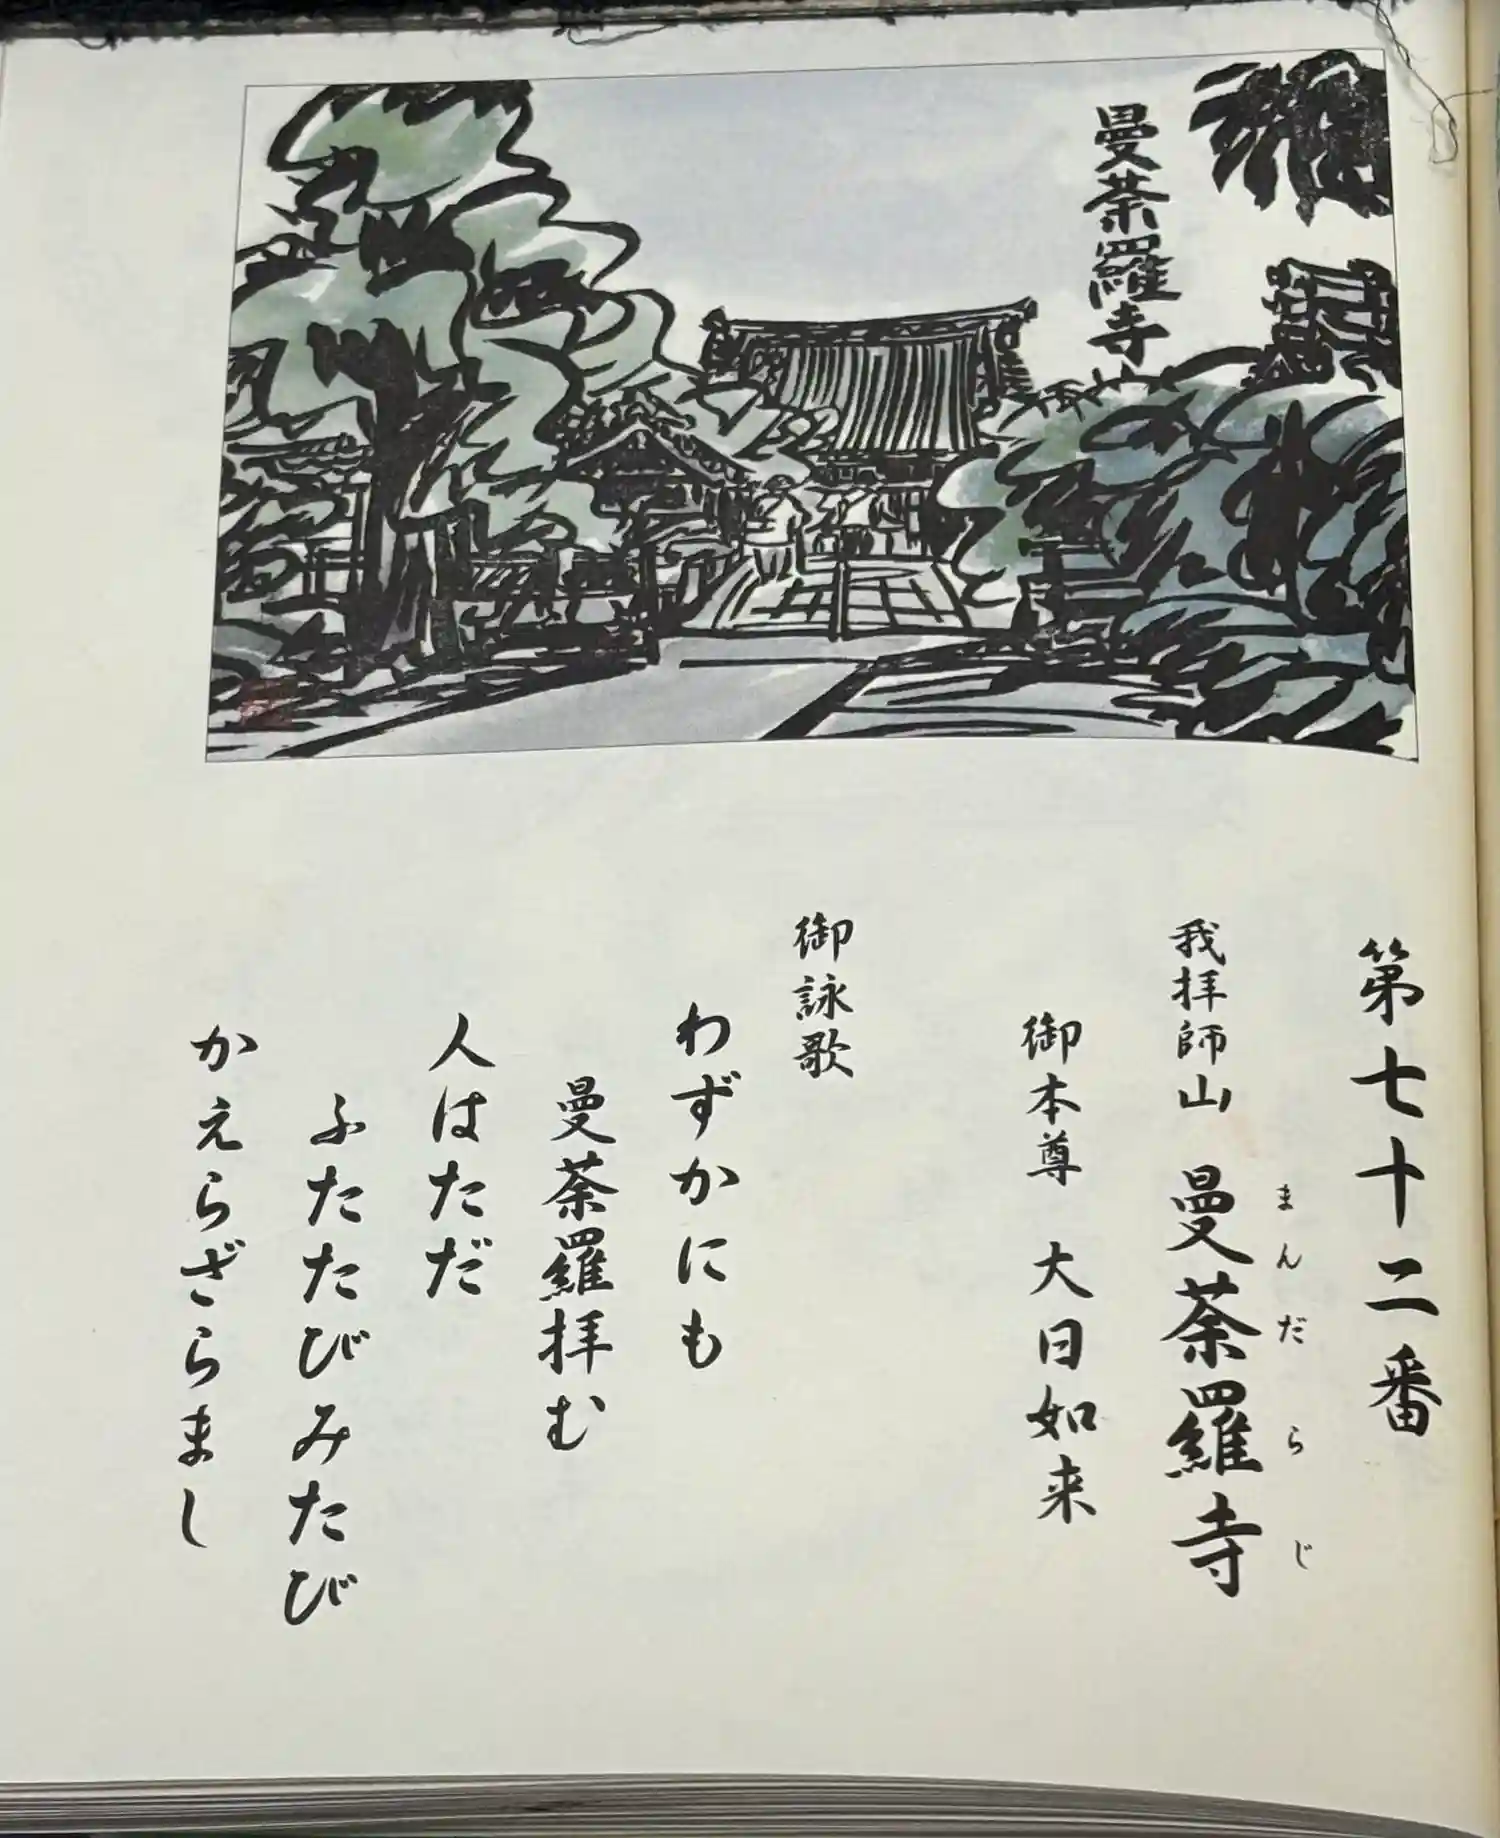 曼荼羅寺
第七十二番
我拝師山 曼荼羅寺
まんだらじ
御本尊 大日如来
御詠歌
わずかにも
曼荼羅拝む
人はただ
ふたたびみたび
かえらざらまし